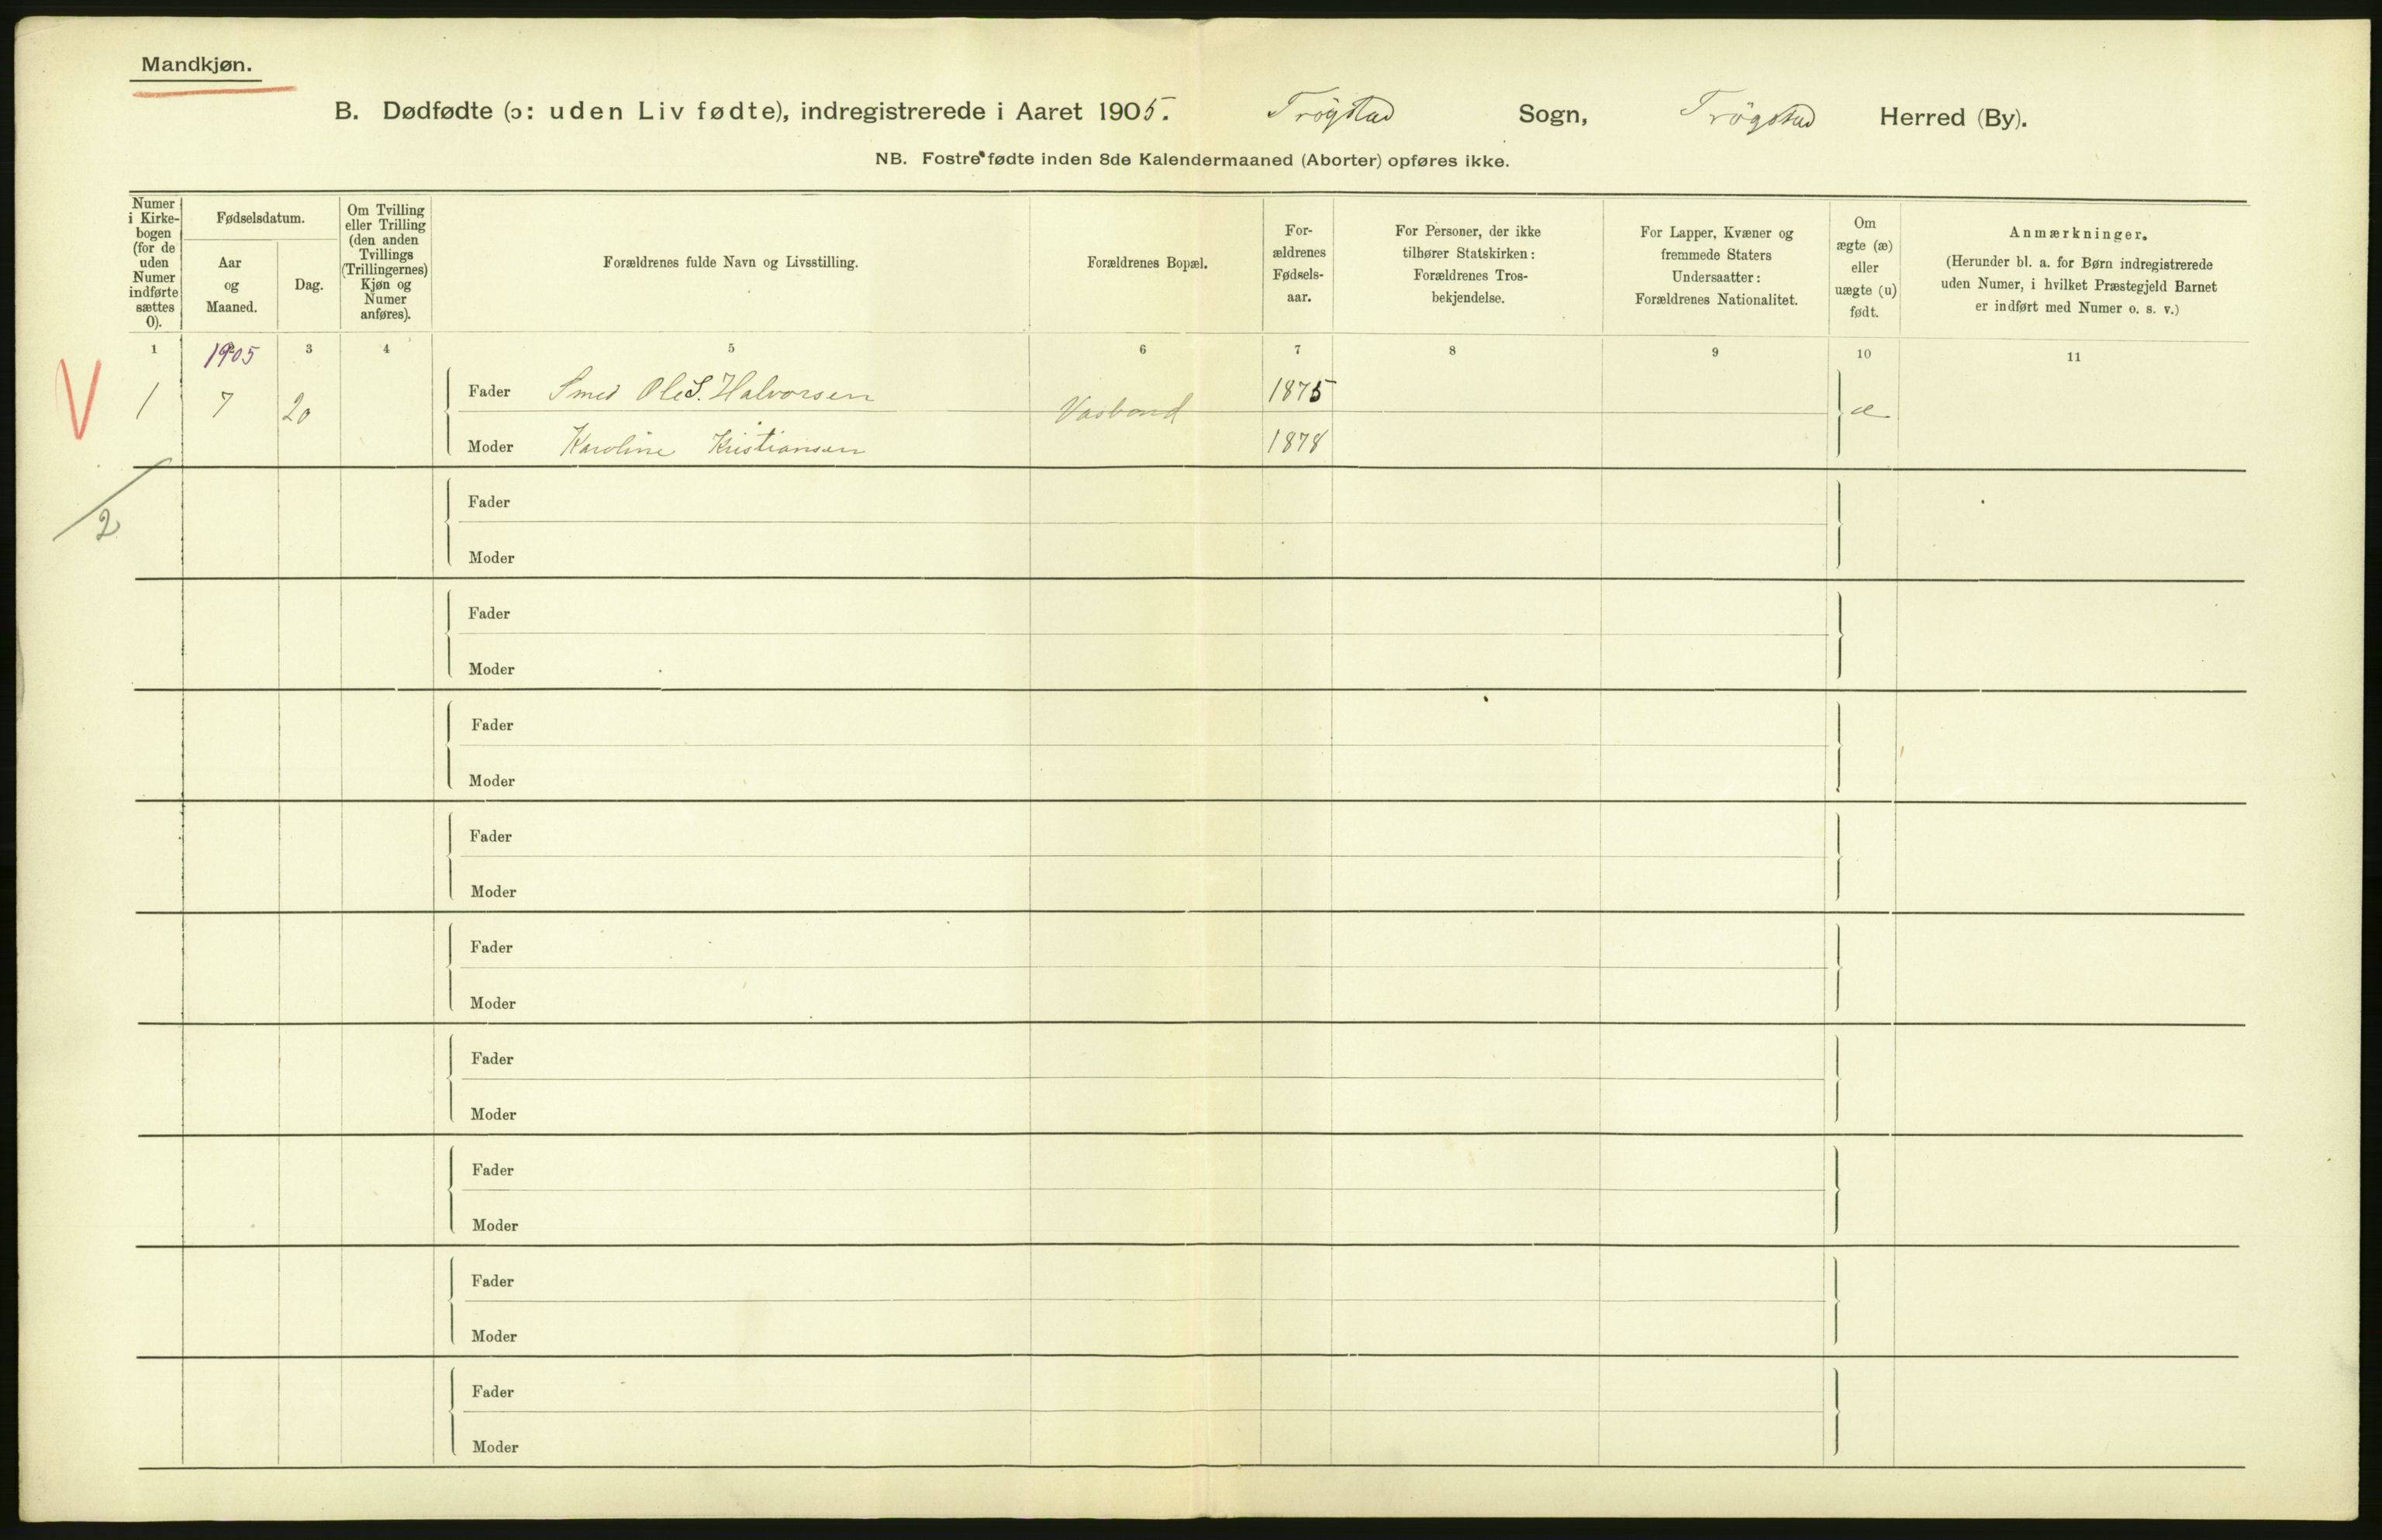 Mandkjøn.
B. Dødfødte (ɔ: uden Liv fødte), indregistrerede i Aaret 1905. Trøgstad Sogn, Trøgstad Herred (By).
NB. Fostre fødte inden 8de Kalendermaaned (Aborter) opføres ikke.
Numer
i Kirke-
bogen
(for de
uden
Numer
indførte
sættes
0).
Fødselsdatum.
Aar
og
Maaned.
Dag.
Om Tvilling
eller Trilling
(den anden
Tvillings
(Trillingernes)
Kjøn og
Numer
anføres).
Forældrenes fulde Navn og Livsstilling.
Forældrenes Bopæl.
For-
ældrenes
Fødsels-
aar.
For Personer, der ikke
tilhører Statskirken:
Forældrenes Tros-
bekjendelse.
For Lapper, Kvæner og
fremmede Staters
Undersaatter:
Forældrenes Nationalitet.
Om
ægte (æ)
eller
uægte (u)
født.
Anmærkninger.
(Herunder bl. a. for Børn indregistrerede
uden Numer, i hvilket Præstegjeld Barnet
er indført med Numer o. s. v.)
1 1905 3 4 5 6 7 8 9 10 11
V 1 7 20 Fader Smed Ole S. Halvorsen Vasbond 1875 æ
Moder Karoline Kristiansen 1878
2
Fader
Moder
Fader
Moder
Fader
Moder
Fader
Moder
Fader
Moder
Fader
Moder
Fader
Moder
Fader
Moder
Fader
Moder